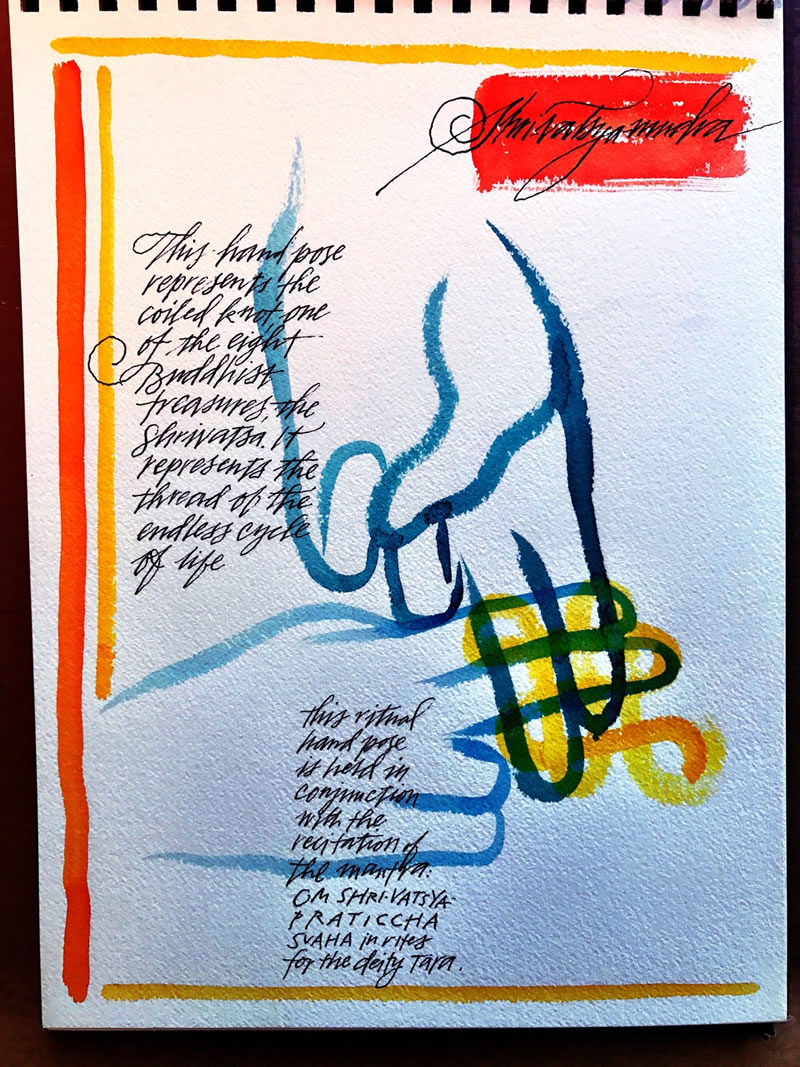 Shri-vatsya-mudra
This hand pose
represents the
coiled knot one
of the eight
Buddhist
treasures, the
Shrivatsa. It
represents the
thread of the
endless cycle
of life
this ritual
hand pose
is held in
conjunction
with the
recitation of
the mantra:
OM SHRI-VATSYA-
PRATICCHA
SVAHA in rites
for the deity Tara.